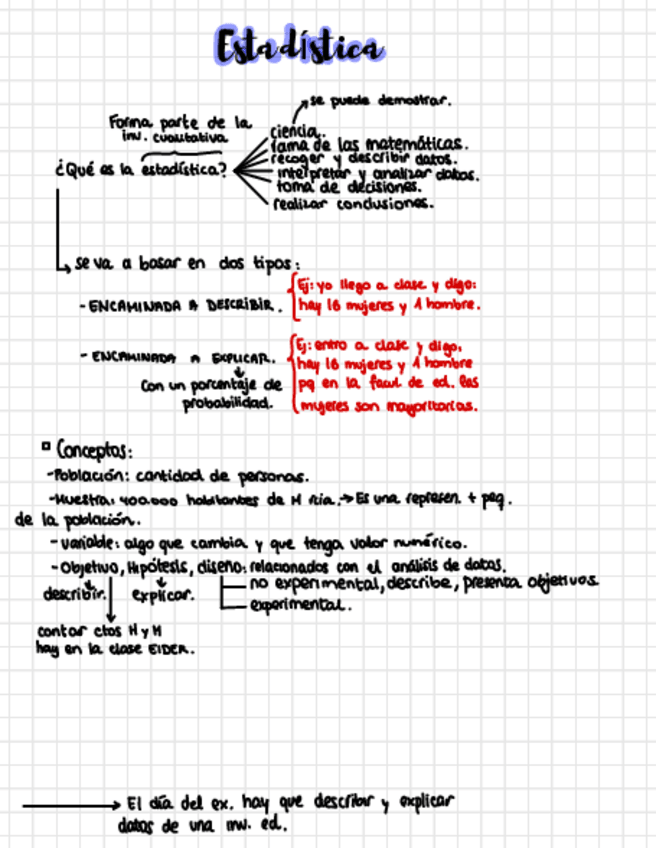 Estadística
se puede demostrar.
Forma parte de la
inv. cuantitativa
ciencia.
rama de las matemáticas.
recoger y describir datos.
¿Qué es la estadística?
interpretar y analizar datos.
toma de decisiones.
realizar conclusiones.
se va a basar en dos tipos:
- ENCAMINADA A DESCRIBIR.
Ej: yo llego a clase y digo:
hay 16 mujeres y 1 hombre.
- ENCAMINADA A EXPLICAR.
Con un porcentaje de
probabilidad.
Ej: entro a clase y digo,
hay 16 mujeres y 1 hombre
pq en la facul de ed. las
mujeres son mayoritarias.
Conceptos:
-Población: cantidad de personas.
-Muestra: 400.000 habitantes de M → Es una represen. + peq.
de la población.
- Variable: algo que cambia y que tenga valor numérico.
- Objetivo, Hipótesis, diseño: relacionados con el análisis de datos.
describir. explicar.
no experimental, describe, presenta objetivos.
experimental.
contar ctos H y M
hay en la clase EIDER.
→ El día del ex. hay que describir y explicar
datos de una inv. ed.